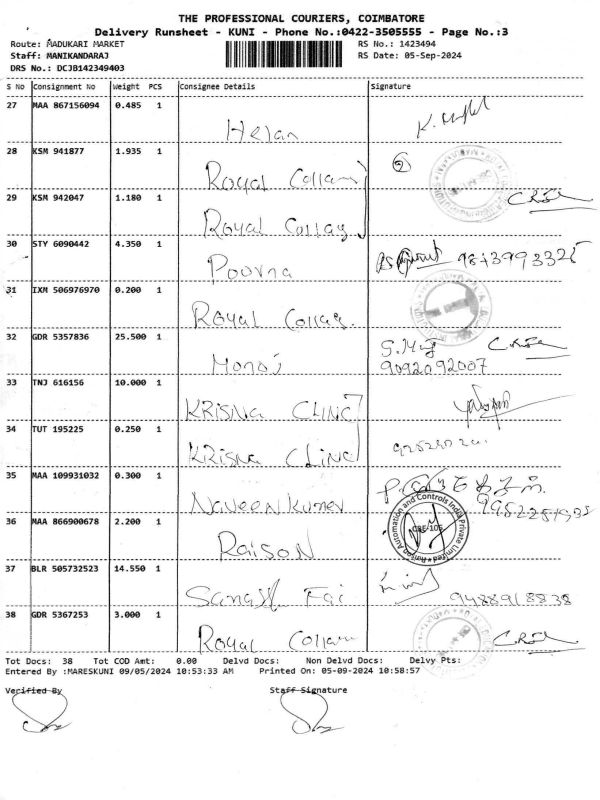 THE PROFESSIONAL COURIERS, COIMBATORE
Delivery Runsheet - KUNI - Phone No.:0422-3505555 - Page No.:3
Route: MADUKARI MARKET RS No.: 1423494
Staff: MANIKANDARAJ RS Date: 05-Sep-2024
DRS No.: DCJB142349403
S No Consignment No Weight PCS Consignee Details Signature
27 MAA 867156094 0.485 1 Helan
28 KSM 941877 1.935 1 Royal 2
29 KSM 942047 1.180 1 Royal Collag
30 STY 6090442 4.350 1 Poorna
31 IXM 506976970 0.200 1 Royal Collag.
32 GDR 5357836 25.500 1 Monoj 9092092007
33 TNJ 616156 10.000 1 KRISNA CLINC
34 TUT 195225 0.250 1 KRISNA CLINC
35 MAA 109931032 0.300 1 Naveen Kumer
36 MAA 866900678 2.200 1 Raison CBE-105
37 BLR 505732523 14.550 1 9488918838
38 GDR 5367253 3.000 1 Royal
Tot Docs: 38 Tot COD Amt: 0.00 Delvd Docs: Non Delvd Docs: Delvy Pts:
Entered By :MARESKUNI 09/05/2024 10:53:33 AM Printed On: 05-09-2024 10:58:57
Verified By Staff Signature